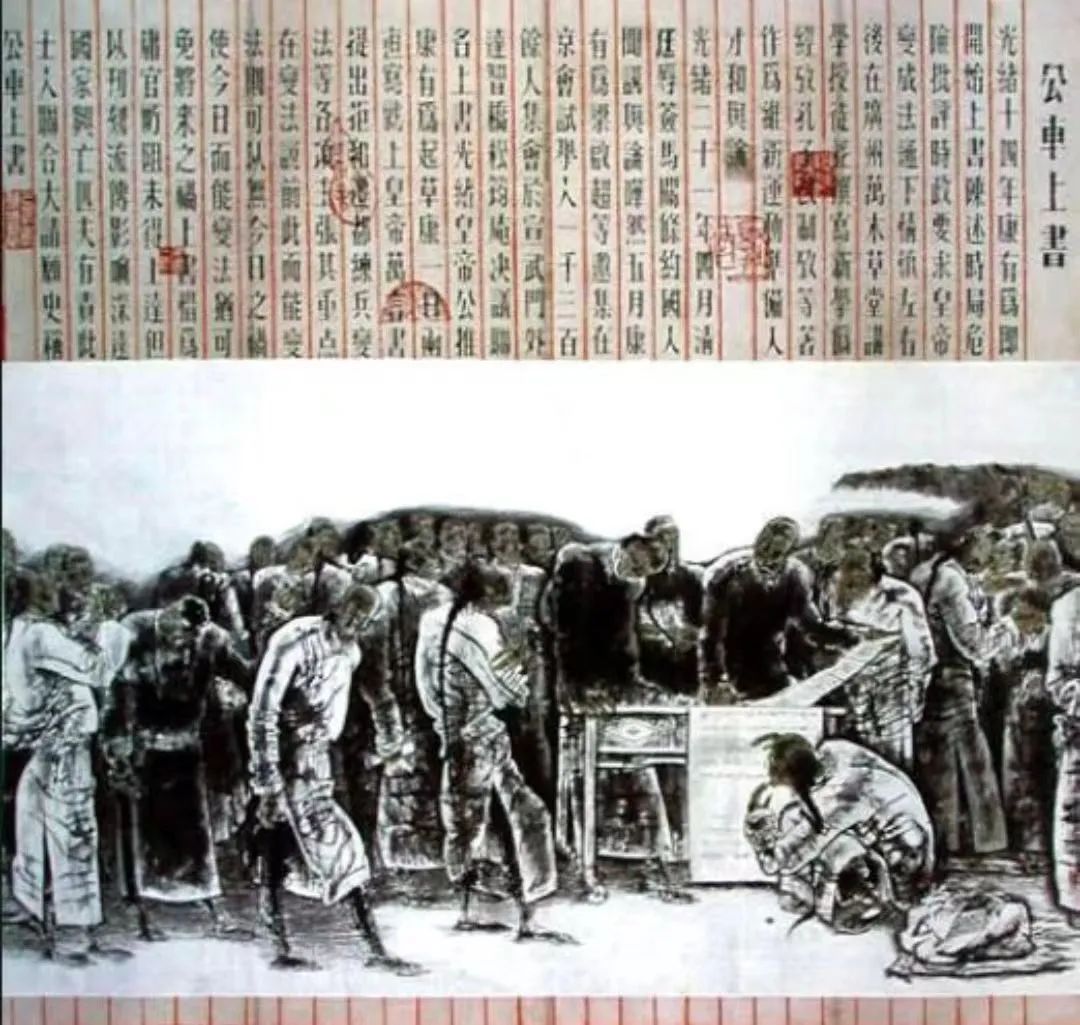 公車上書
光緒十四年康有爲即
開始上書陳述時局危
險批評時政要求皇帝
變成法通下情慎左右
後在廣州萬木草堂講
學授徒並撰寫新學僞
經攷孔子改制攷等著
作爲維新運動準備人
才和輿論
光緒二十一年四月清
廷辱簽馬關條約國人
聞訊輿論嘩然五月康
有爲梁啟超等邀集在
京會試舉人一千二百
餘人集會於宣武門外
達智橋松筠庵决議聯
名上書光緒皇帝公推
康有爲起草康一日兩
亱寫就上皇帝萬言書
提出拒和遷都練兵變
法等各項主張其重点
在變法謂前此而能變
法則可以無今日之禍
使今日而能變法猶可
免將來之禍上書惜爲
庸官妨阻未得上達但
以刊刻流傳影响深遠
國家興亡匹夫有責此
士人聯合大請願史稱
公車上書